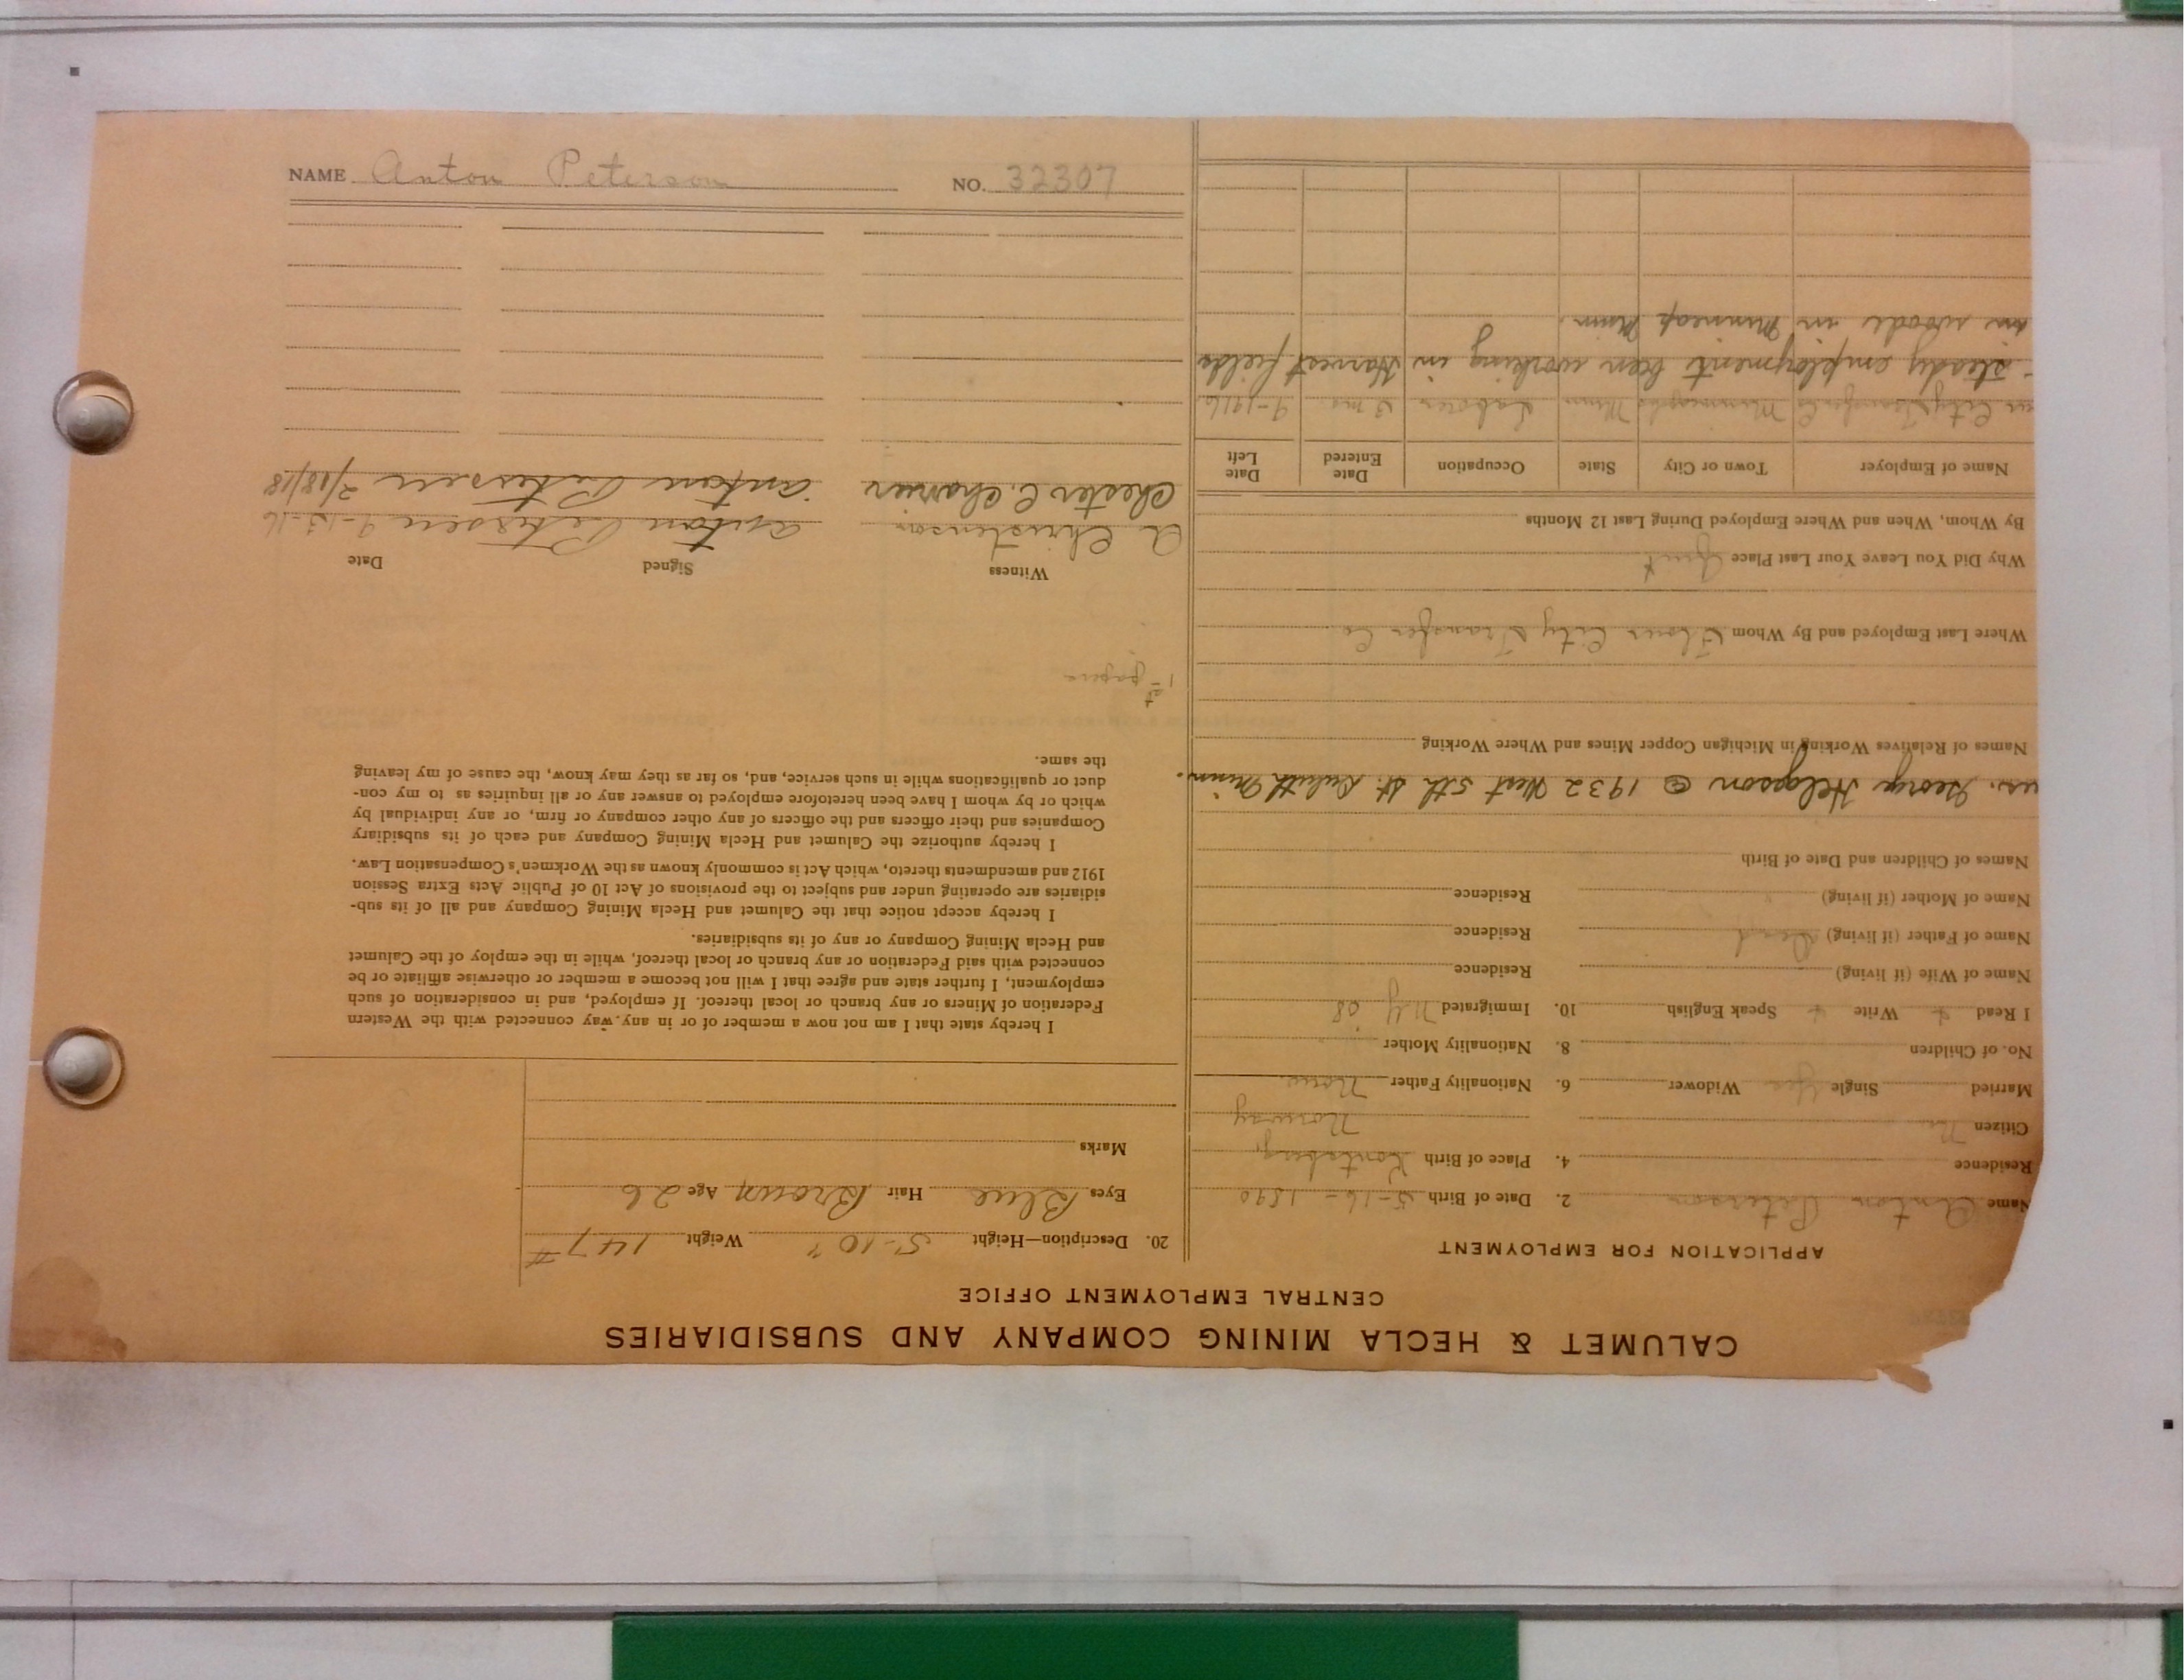 CALUMET & HECLA MINING COMPANY AND SUBSIDIARIES
CENTRAL EMPLOYMENT OFFICE
APPLICATION FOR EMPLOYMENT
Name Anton Peterson 2. Date of Birth 5-16-1890
Residence 4. Place of Birth
Norway
Citizen No
Married Single Yes Widower 6. Nationality Father Norw.
No. of Children 8. Nationality Mother
I Read + Write + Speak English 10. Immigrated N.Y. 08
Name of Wife (if living) Residence
Name of Father (if living) Dead Residence
Name of Mother (if living) Residence
Names of Children and Date of Birth
George Helgeson @ 1932 West 5th St. Duluth Minn.
Names of Relatives Working in Michigan Copper Mines and Where Working
Where Last Employed and By Whom Flour City Transfer Co
Why Did You Leave Your Last Place Quit
By Whom, When and Where Employed During Last 12 Months
Name of Employer Town or City State Occupation Date Entered Date Left
City Transfer Co Minneapolis Minn Laborer 3 mo. 9-1916
steady employment been working in Harvest fields
in woods in Minneap Minn.
20. Description—Height 5-10" Weight 147#
Eyes Blue Hair Brown Age 26
Marks
I hereby state that I am not now a member of or in any way connected with the Western
Federation of Miners or any branch or local thereof. If employed, and in consideration of such
employment, I further state and agree that I will not become a member or otherwise affiliate or be
connected with said Federation or any branch or local thereof, while in the employ of the Calumet
and Hecla Mining Company or any of its subsidiaries.
I hereby accept notice that the Calumet and Hecla Mining Company and all of its sub-
sidiaries are operating under and subject to the provisions of Act 10 of Public Acts Extra Session
1912 and amendments thereto, which Act is commonly known as the Workmen's Compensation Law.
I hereby authorize the Calumet and Hecla Mining Company and each of its subsidiary
Companies and their officers and the officers of any other company or firm, or any individual by
which or by whom I have been heretofore employed to answer any or all inquiries as to my con-
duct or qualifications while in such service, and, so far as they may know, the cause of my leaving
the same.
1st papers
Witness Signed Date
A Christenson Anton Petersen 9-15-16
Chester C. Charier Anton Petersen 2/18/18
NAME Anton Peterson NO. 32307